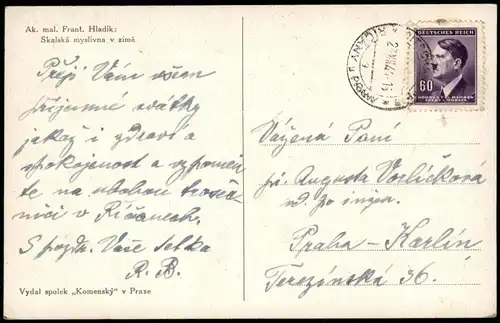 Ak. mal. Frant. Hladík:
Skalská myslivna v zimě
Přeji Vám všem
příjemné svátky
jakož i zdraví a
spokojenost a vzpomeň
te na ubohou troseč
nici v Říčanech.
S pozdr. Vaše tetka
R. B.
Vydal spolek „Komenský" v Praze
DEUTSCHES REICH
60
BÖHMEN u. MÄHREN
ČECHY a MORAVA
ŘÍČANY U PRAHY
Vážená Paní
pí. Augusta Vorlíčková
vd. po
Praha-Karlín
Terezínská 36.